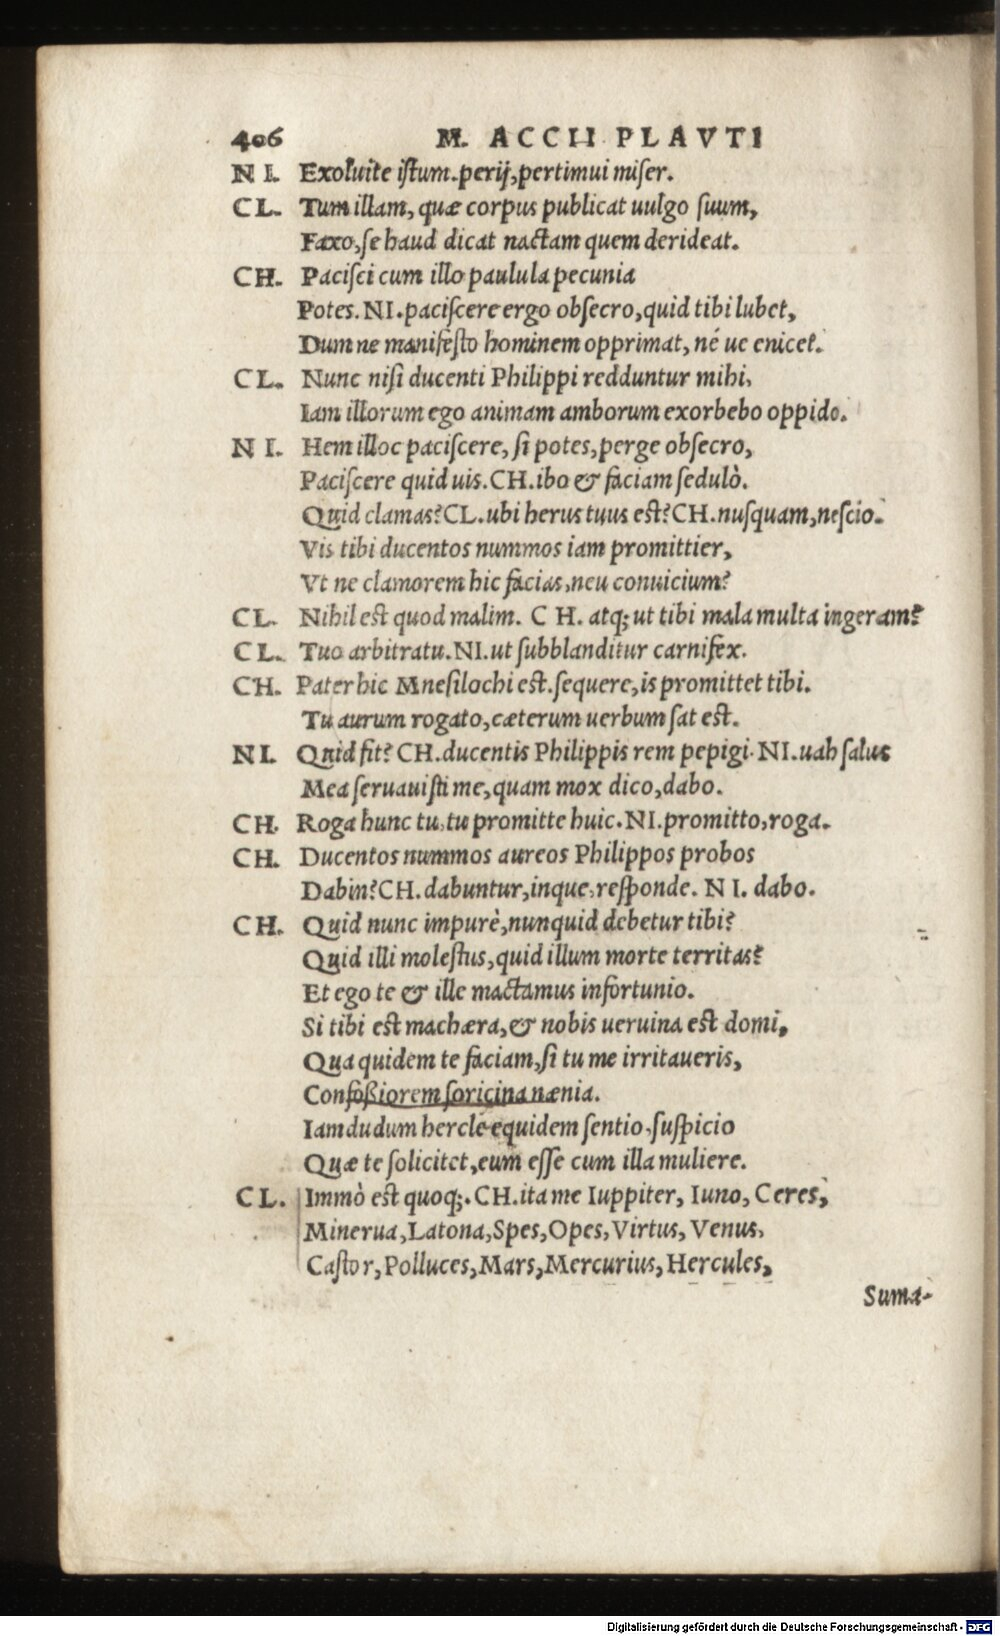 406 M. ACCII PLAVTI
NI. Exoluite istum. perij, pertimui miser.
CL. Tum illam, quæ corpus publicat uulgo suum,
Faxo, se haud dicat nactam quem derideat.
CH. Pacisci cum illo paulula pecunia
Potes. NI. paciscere ergo obsecro, quid tibi lubet,
Dum ne manifesto hominem opprimat, né ue enicet.
CL. Nunc nisi ducenti Philippi redduntur mihi,
Iam illorum ego animam amborum exorbebo oppido.
NI. Hem illoc paciscere, si potes, perge obsecro,
Paciscere quid uis. CH. ibo & faciam sedulò.
Quid clamas? CL. ubi herus tuus est? CH. nusquam, nescio.
Vis tibi ducentos nummos iam promittier,
Vt ne clamorem hic facias, neu conuicium?
CL. Nihil est quod malim. CH. atq; ut tibi mala multa ingeram?
CL. Tuo arbitratu. NI. ut subblanditur carnifex.
CH. Pater hic Mnesilochi est. sequere, is promittet tibi.
Tu aurum rogato, cæterum uerbum sat est.
NI. Quid fit? CH. ducentis Philippis rem pepigi. NI. uah salus
Mea seruauisti me, quam mox dico, dabo.
CH. Roga hunc tu, tu promitte huic. NI. promitto, roga.
CH. Ducentos nummos aureos Philippos probos
Dabin? CH. dabuntur, inque, responde. NI. dabo.
CH. Quid nunc impurè, nunquid debetur tibi?
Quid illi molestus, quid illum morte territas?
Et ego te & ille mactamus infortunio.
Si tibi est machæra, & nobis ueruina est domi,
Qua quidem te faciam, si tu me irritaueris,
Confoßiorem soricina nænia.
Iamdudum hercle equidem sentio, suspicio
Quæ te solicitet, eum esse cum illa muliere.
CL. Immò est quoq;. CH. ita me Iuppiter, Iuno, Ceres,
Minerua, Latona, Spes, Opes, Virtus, Venus,
Castor, Polluces, Mars, Mercurius, Hercules,
Suma-
Digitalisierung gefördert durch die Deutsche Forschungsgemeinschaft - DFG